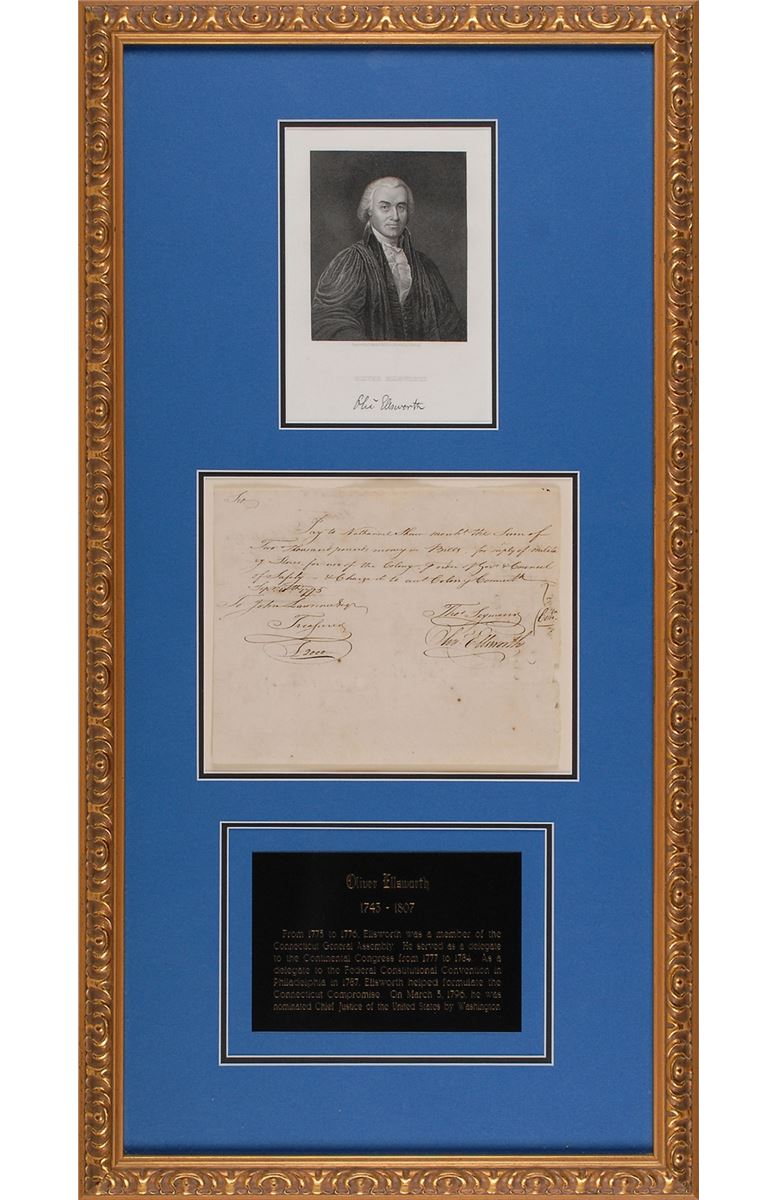 OLIVER ELLSWORTH
Olivr Ellsworth
Sir
Pay to Nathaniel Shaw mercht the Sum of
Two thousand pounds money in Bills for
of Stores for use of the Colony of Govr & Council
of Safety & Charge it to Colony of Connectt
1775
To John Lawrence Esqr
Treasurer
Thos Seymour
Olivr Ellsworth
Comtt
£2000
Oliver Ellsworth
1745 - 1807
From 1775 to 1776, Ellsworth was a member of the
Connecticut General Assembly. He served as a delegate
to the Continental Congress from 1777 to 1784. As a
delegate to the Federal Constitutional Convention in
Philadelphia in 1787, Ellsworth helped formulate the
Connecticut Compromise. On March 3, 1796, he was
nominated Chief Justice of the United States by Washington